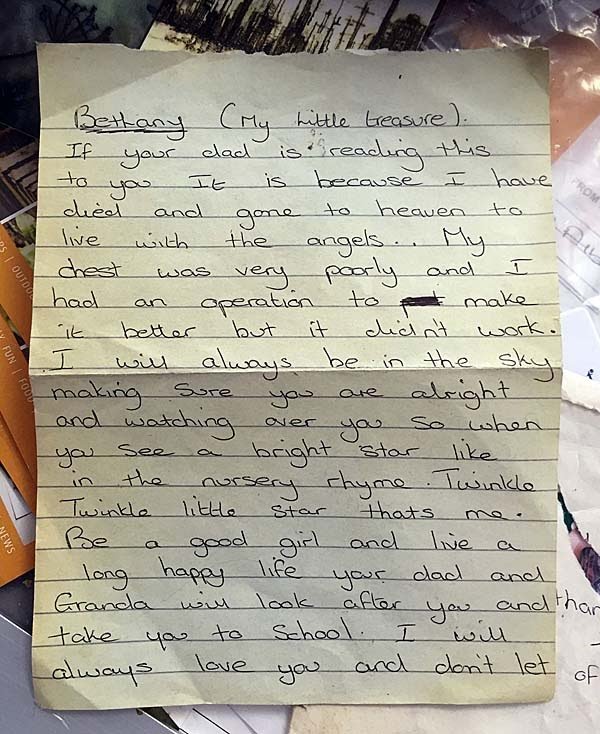 Bethany (My little treasure).
If your dad is reading this
to you It is because I have
died and gone to heaven to
live with the angels... My
chest was very poorly and I
had an operation to make
it better but it didn't work.
I will always be in the sky
making sure you are alright
and watching over you so when
you see a bright star like
in the nursery rhyme. Twinkle
Twinkle little star thats me.
Be a good girl and live a
long happy life your dad and
Granda will look after you and
take you to School. I will
always love you and don't let
FUN | FOOD
NEWS
of